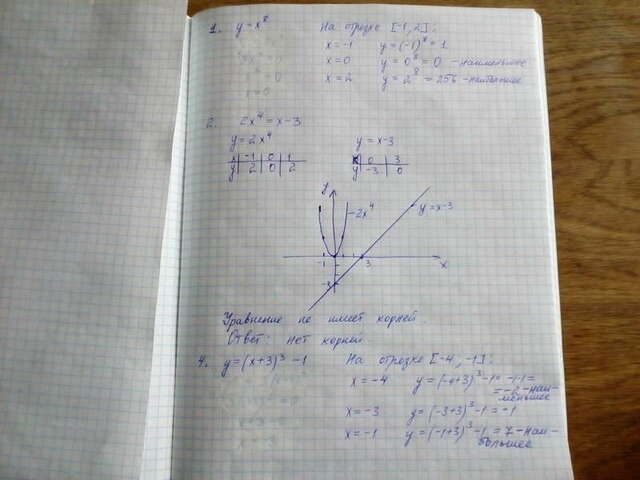 1. y=x⁸ На отрезке [-1,2]:
x=-1 y=(-1)⁸=1
x=0 y=0⁸=0 -наименьшее
x=2 y=2⁸=256 -наибольшее
2. 2x⁴=x-3
y=2x⁴ y=x-3
x -1 0 1 x 0 3
y 2 0 2 y -3 0
y
2x⁴
y=x-3
-1 3 x
-3
Уравнение не имеет корней
Ответ: нет корней.
4. y=(x+3)³-1 На отрезке [-4,-1]:
x=-4 y=(-4+3)³-1=-1-1=
=-2-наи-
меньшее
x=-3 y=(-3+3)³-1=-1
x=-1 y=(-1+3)³-1=7-наи-
большее